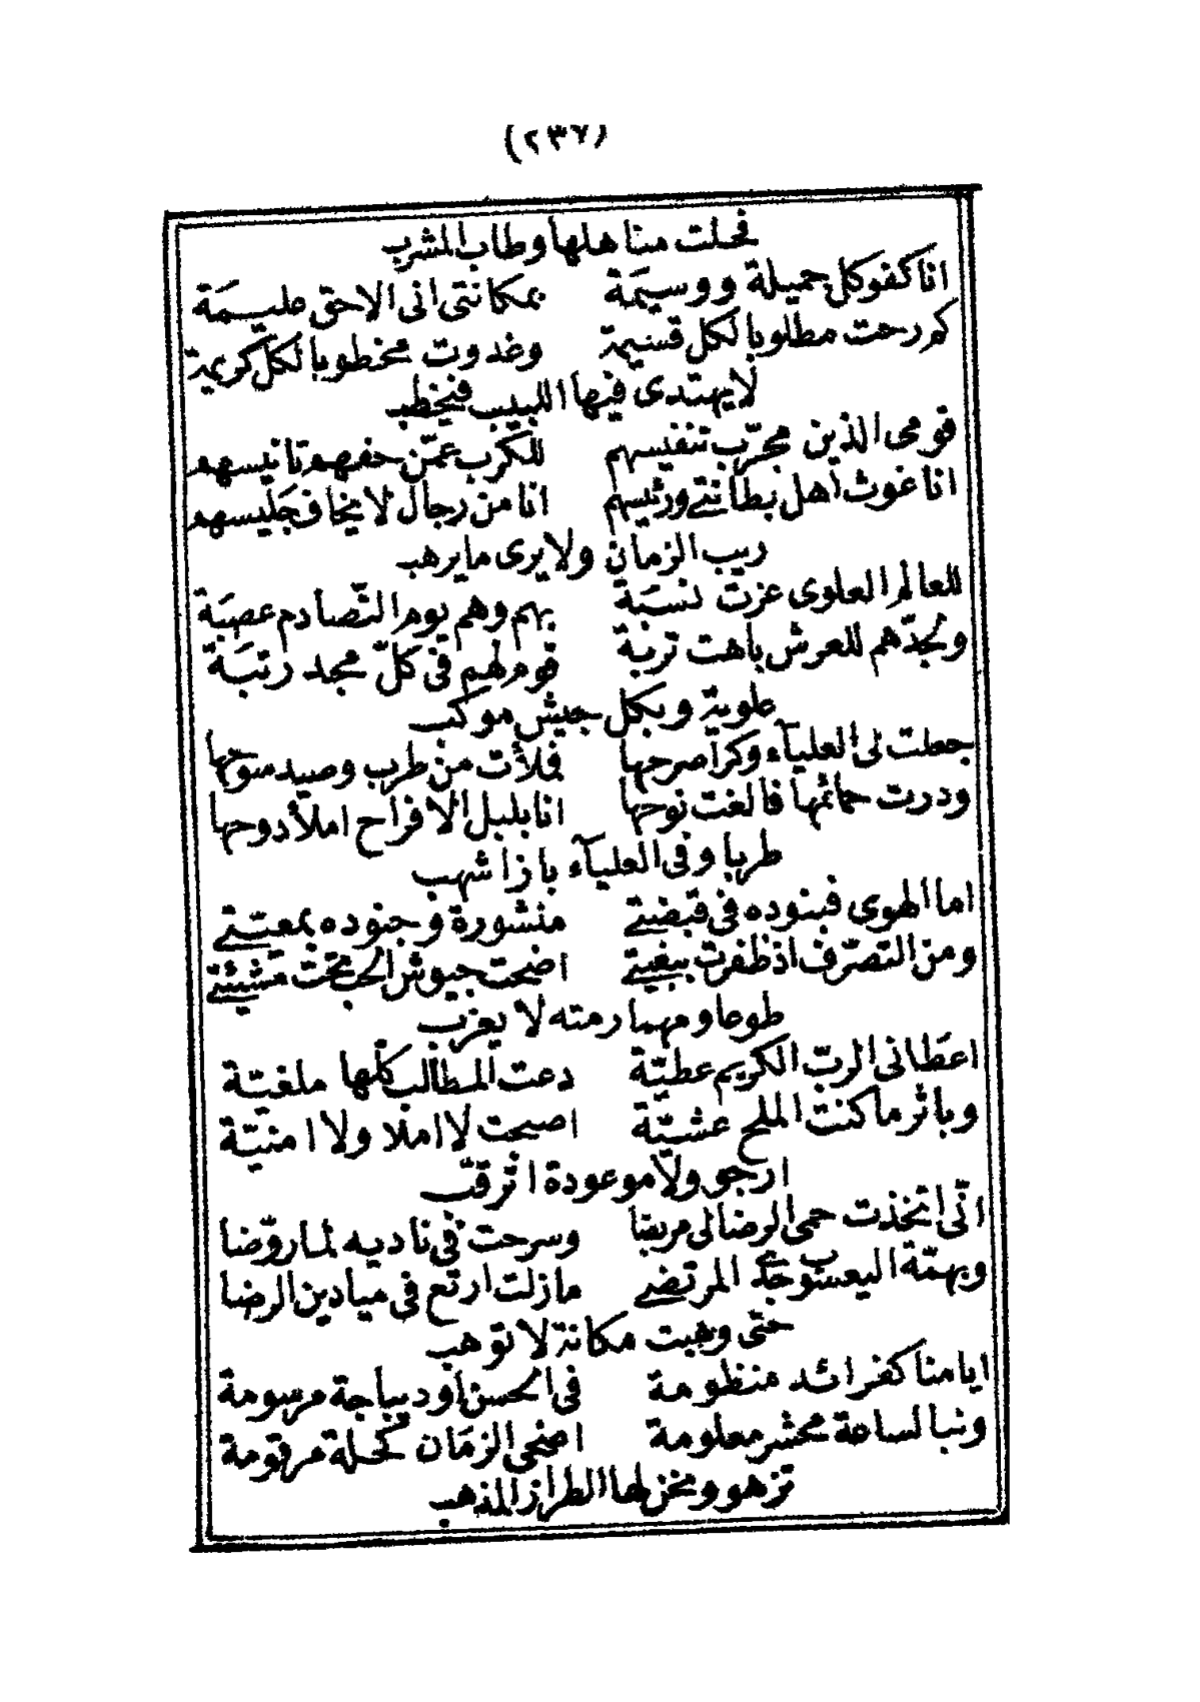 (٢٣٦)
فحلت مناهلها وطاب المشرب
انا كفو كل جميلة ووسيمة بمكانتى انى الاحق عليمة
كم رحت مطلوبا لكل قسيمة وغدوت مخطوبا لكل كريمة
لا يهتدى فيها اللبيب فيخطب
قومى الذين مجرّب تنفيسهم للكرب عمّن حفهم تانيسهم
انا غوث أهل بطانتى ورئيسهم انا من رجال لا يخاف جَليسهم
ريب الزمان ولا يرى ما يرهب
للعالم العلوى عزت نسبَة بهم وهم يوم التّصادم عصبَة
وبجدّهم للعرش باهت تربة قوم لهم فى كلّ مجد رتبَة
علوية وبكل جيش موكب
جعلت لى العلياء وكرا صرحها فملأت من طرب وصيد سوحها
ودرت حمائمها فالغت نوحها انا بلبل الافراح املأ دوحها
طربا وفى العلياء باز اشهب
اما الهوى فبنوده فى قبضتى منشورة وجنوده بمعيّتى
ومن التصرّف اذ ظفرت ببغيتى اضحت جيوش الحب تحت مشيئتى
طوعا ومهما رمته لا يعزب
اعطانى الربّ الكريم عطيّة دعت المطالب كلها ملغيّة
وباثر ما كنت الملح عشيّة اصبحت لا املا ولا امنيّة
ارجو ولا موعودة اترقّب
انّى اتخذت حمى الرضا لى مربضا وسرحت فى ناديه لما روّضا
وبهمّة اليعسوب جدّى المرتضى ما زلت ارتع فى ميادين الرضا
حتى وهبت مكانة لا توهب
ايامنا كفرائد منظومة فى الحسن أو ديباجة مرسومة
وبنا لساعة محشر معلومة اضحى الزمَان كحلة مرقومة
تزهو ونحن لها الطراز المذهب